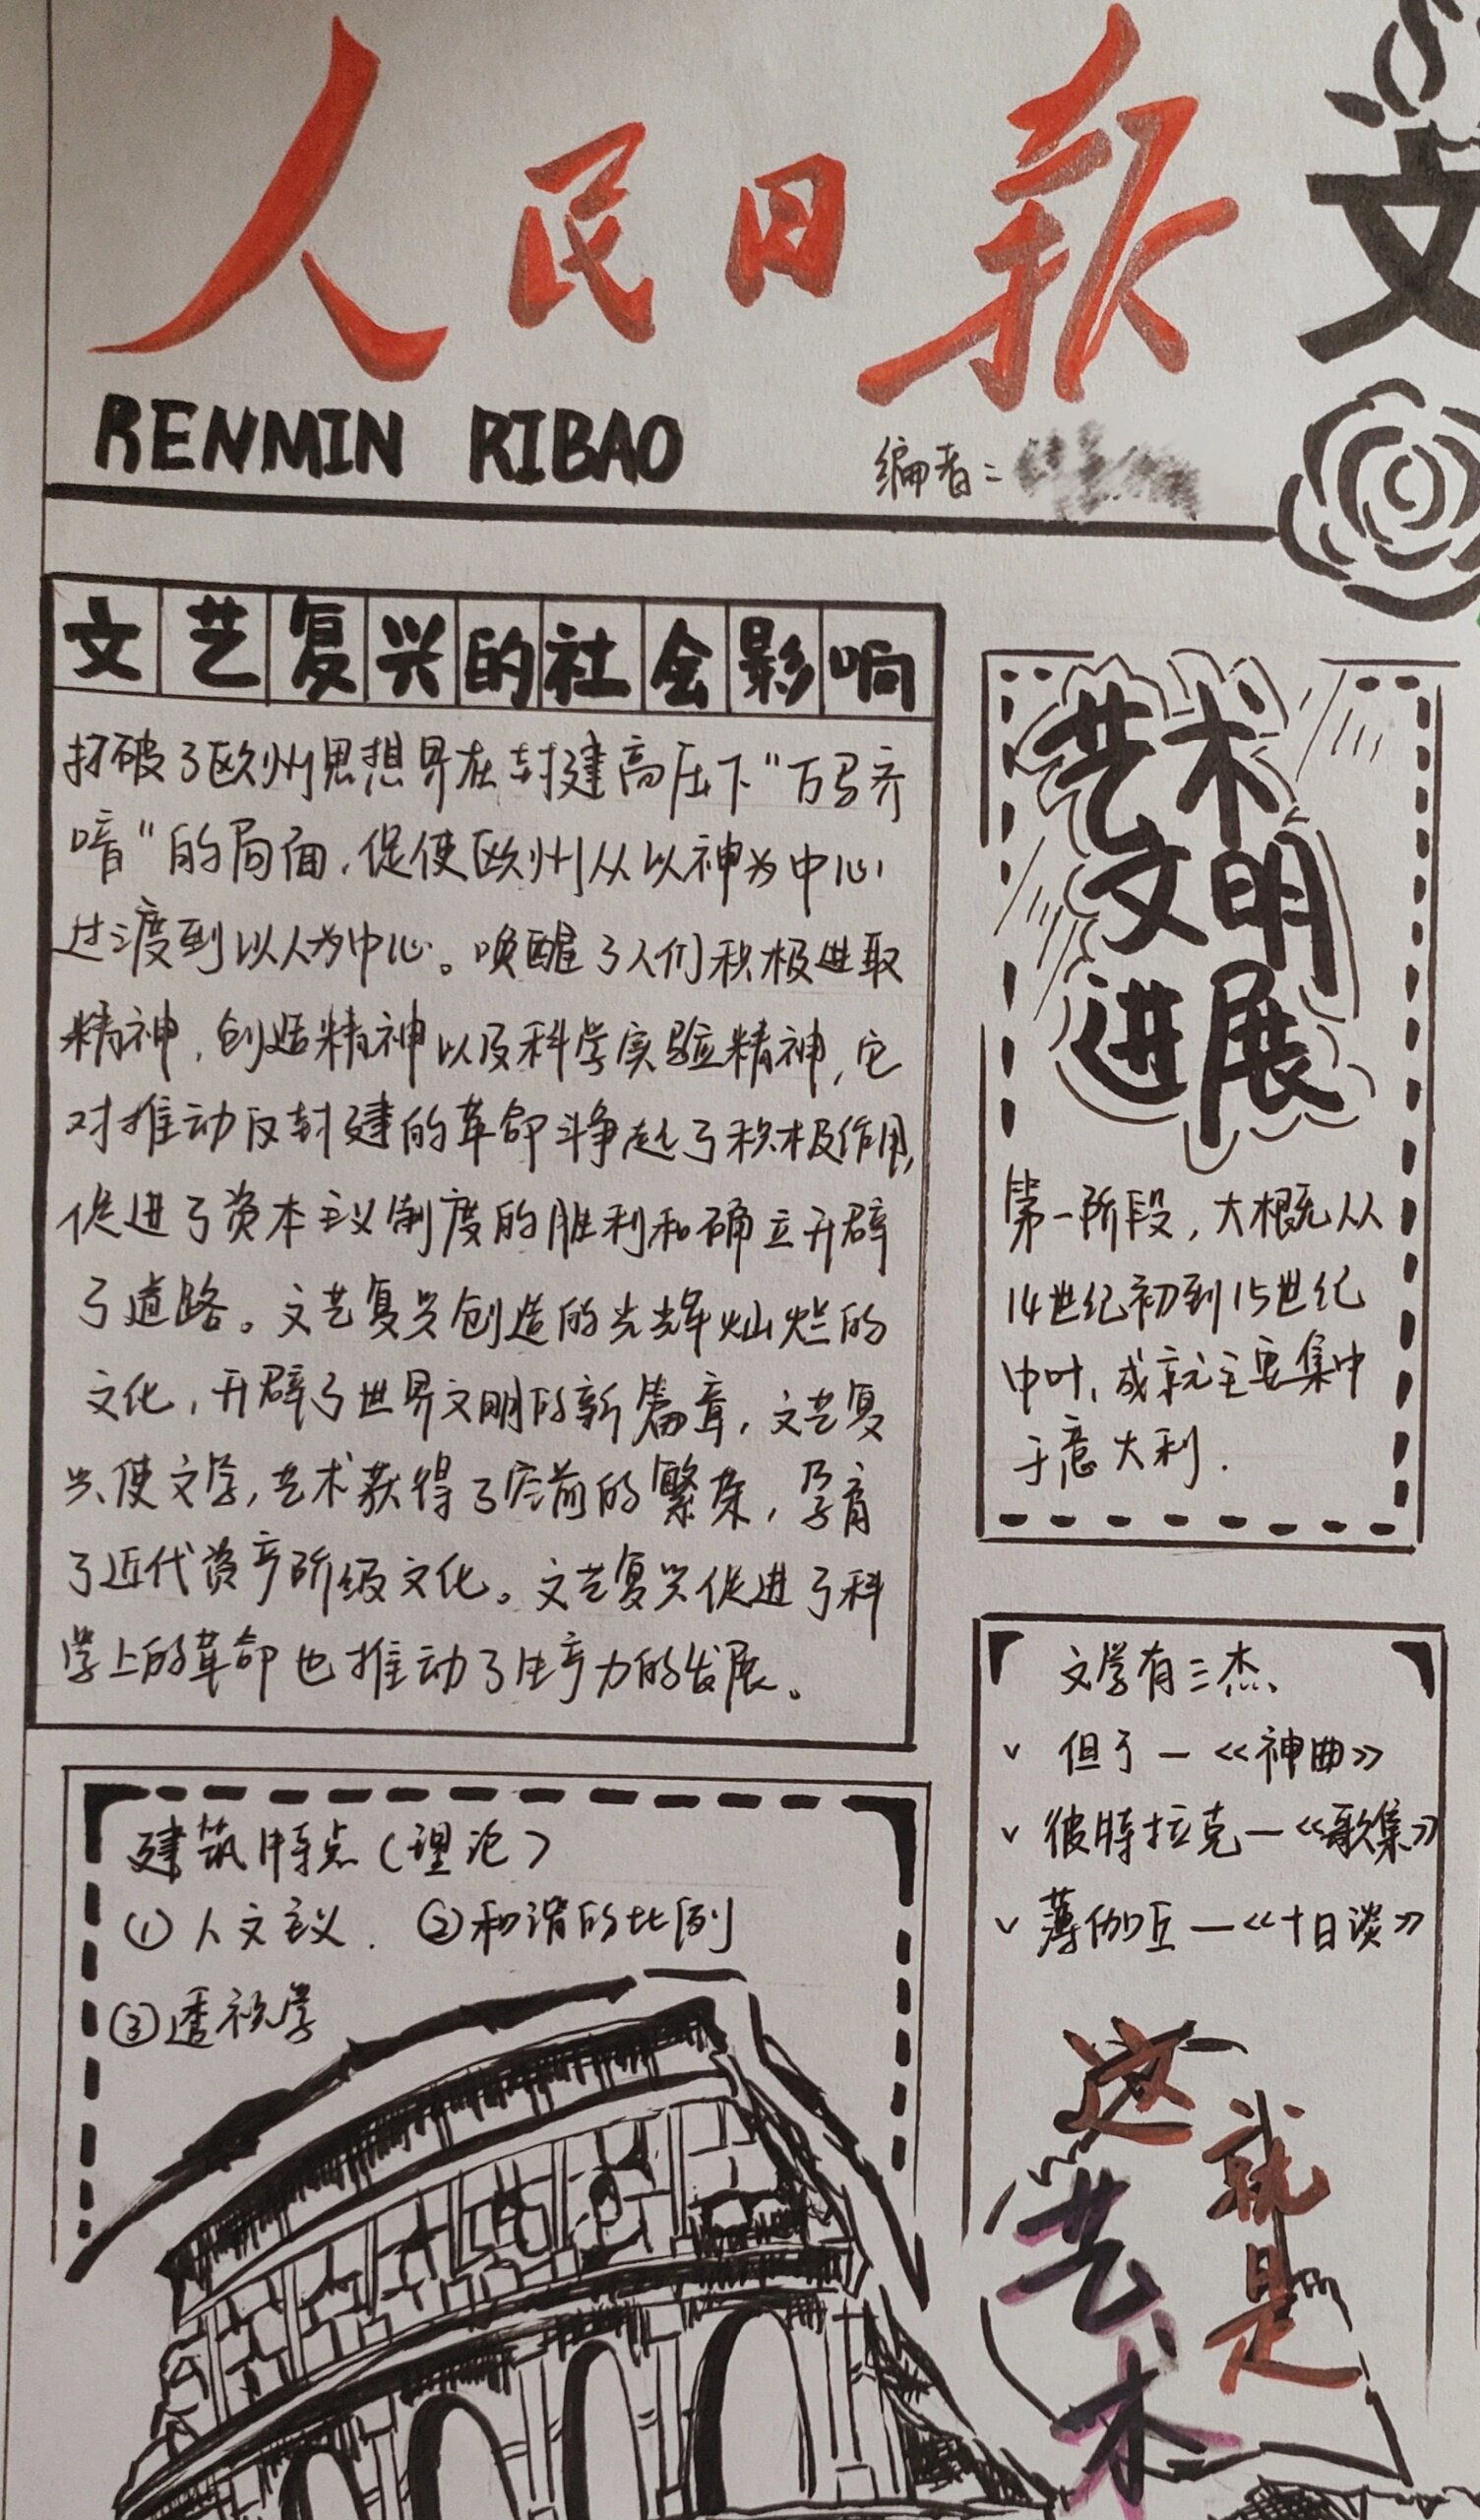 人民日报
RENMIN RIBAO
编者：
文
文艺复兴的社会影响
打破了欧州思想界在封建高压下"万马齐
喑"的局面，促使欧州从以神为中心
过渡到以人为中心。唤醒了人们积极进取
精神，创造精神以及科学实验精神，它
对推动反封建的革命斗争起了积极作用，
促进了资本主义制度的胜利和确立开辟
了道路。文艺复兴创造的光辉灿烂的
文化，开辟了世界文明的新篇章，文艺复
兴使文学，艺术获得了空前的繁荣，孕育
了近代资产阶级文化。文艺复兴促进了科
学上的革命也推动了生产力的发展。
艺术
文明
进展
第一阶段，大概从
14世纪初到15世纪
中叶，成就主要集中
于意大利.
文学有三杰、
∨ 但丁—《神曲》
∨ 彼特拉克—《歌集》
∨ 薄伽丘—《十日谈》
建筑特点（理论）
①人文主义. ②和谐的比例
③透视学
这
就
是
艺
术